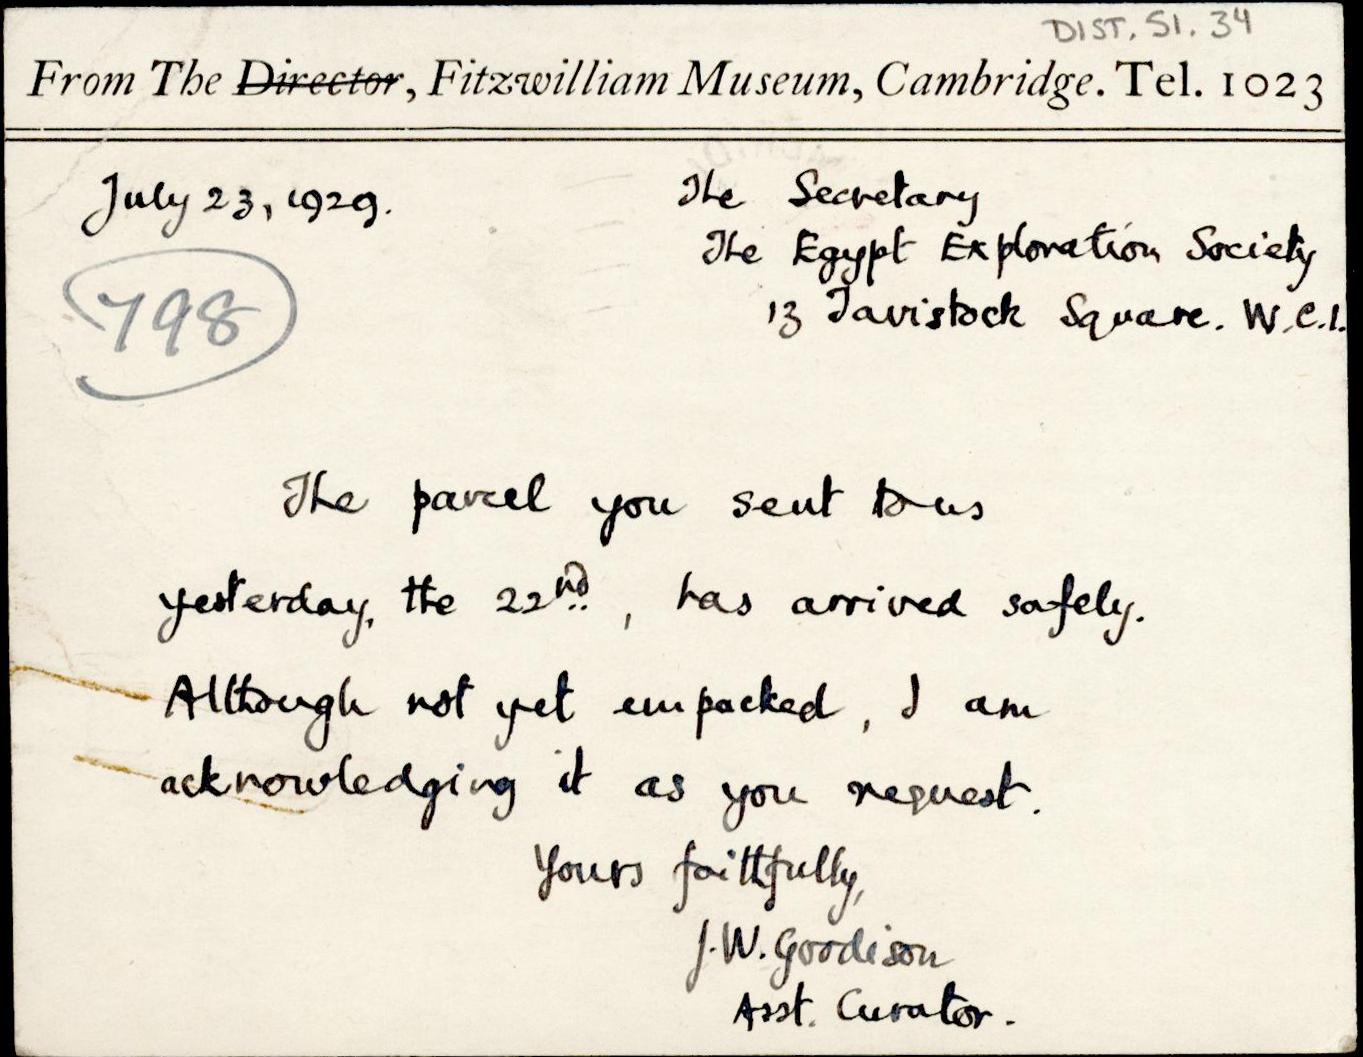 DIST. 51. 34
From The Director, Fitzwilliam Museum, Cambridge. Tel. 1023
July 23, 1929.
The Secretary
The Egypt Exploration Society
13 Tavistock Square. W.C.1.
798
The parcel you sent to us
yesterday, the 22nd, has arrived safely.
Although not yet unpacked, I am
acknowledging it as you request.
Yours faithfully,
J.W. Goodison
Asst. Curator.